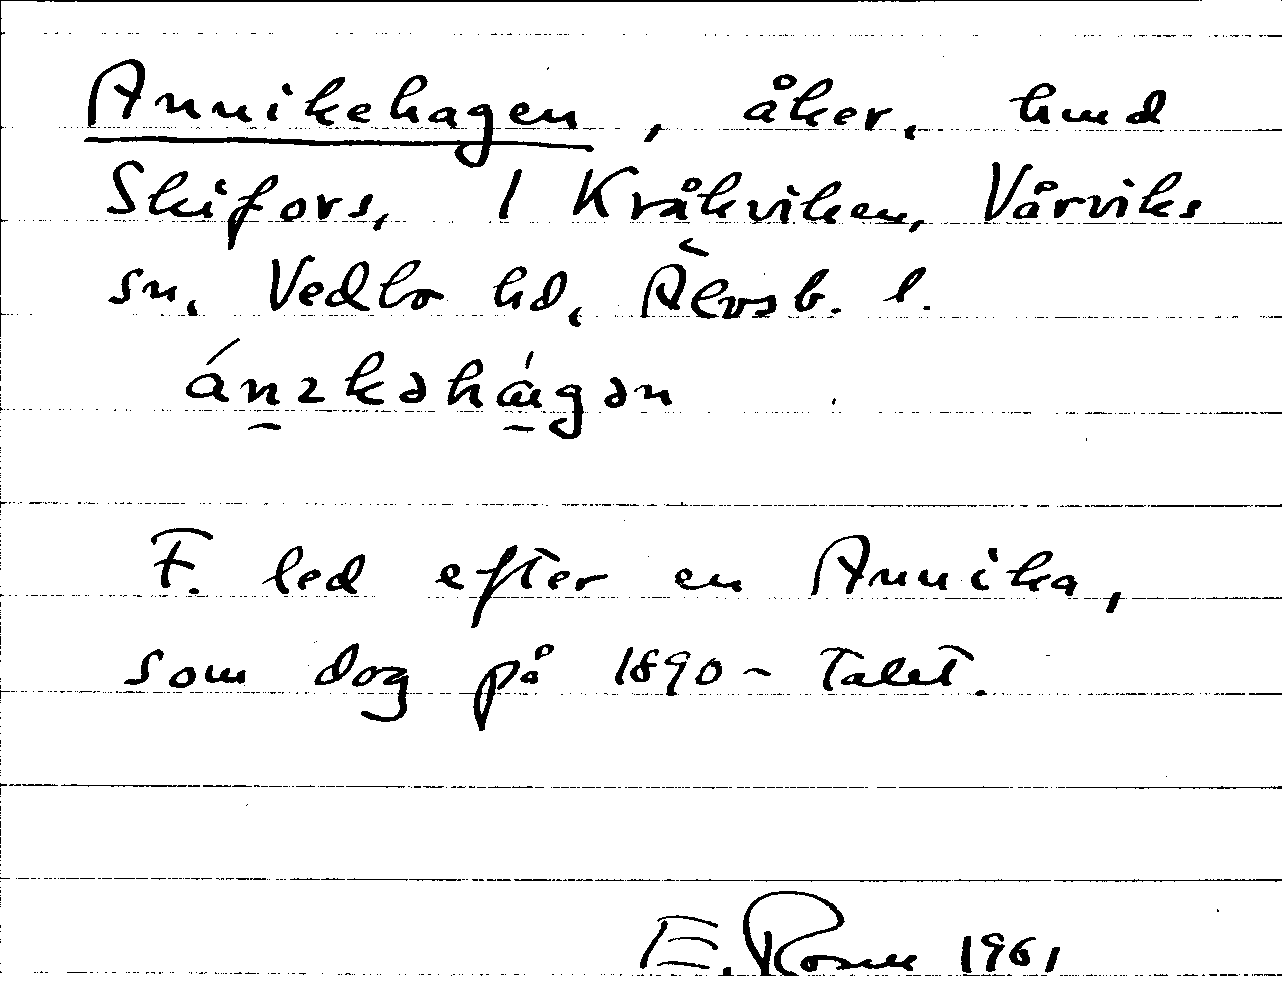 Annikehagen, åker, hmd
Skifors, 1 Kråkviken, Vårviks
sn, Vedbo hd, Älvsb. l.
ánıkəhágən
F. led efter en Annika,
som dog på 1890-talet.
E. Rosm 1961